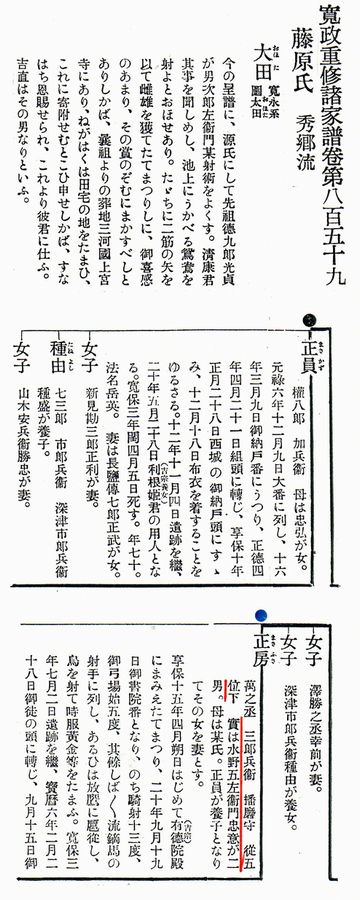 寛政重修諸家譜卷第八百五十九
藤原氏 秀郷流
大田 おほた
寛永系
圖太田
今の呈譜に、源氏にして先祖德九郎光貞
が男次郎左衞門某射術をよくす。清康君
其事を聞しめし、池上にうかべる鴛鴦を
射よとおほせあり。たゞちに二筋の矢を
以て雌雄を獲てたてまつりしに、御喜感
のあまり、その賞のぞむにまかすべしと
ありしかば、曩祖よりの葬地三河國上宮
寺にあり、ねがはくは田宅の地をたまひ、
これに寄附せむとこひ申せしかば、すな
はち恩賜せられ、これより彼君に仕ふ。
吉直はその男なりといふ。
正員 まさかず
權八郎 加兵衞 母は忠弘が女。
元祿六年十二月九日大番に列し、十六
年三月九日御納戸番にうつり、正德四
年四月二十一日組頭に轉じ、享保十年
正月二十八日西城の御納戸頭にすゝ
み、十二月十八日布衣を着することを
ゆるさる。十二年十一月四日遺跡を繼、
二十年五月二十八日利根姬君(吉宗養女)の用人とな
る。寛保三年閏四月五日死す。年七十。
法名岳英。 妻は長鹽傳七郎正武が女。
女子
新見勘三郎正利が妻。
種由 たねよし
七三郎 市郎兵衞 深津市郎兵衞
種盛が養子。
女子
山木安兵衞勝忠が妻。
女子
澤勝之丞幸前が妻。
女子
深津市郎兵衞種由が養女。
正房 まさふさ
萬之丞 三郎兵衞 播磨守 從五
位下 實は水野五左衞門忠意が二
男。母は某氏。正員が養子となり
てその女を妻とす。
享保十五年四月朔日はじめて有德院殿(吉宗)
にまみえたてまつり、二十年九月十九
日御書院番となり、のち騎射十三度、
御弓場始五度、其餘しばしば流鏑馬の
射手に列し、あるひは放鷹に扈從し、
鳥を射て時服黃金等をたまふ。寛保三
年七月二日遺跡を繼、寶曆六年二月二
十八日御徒の頭に轉じ、九月十五日御